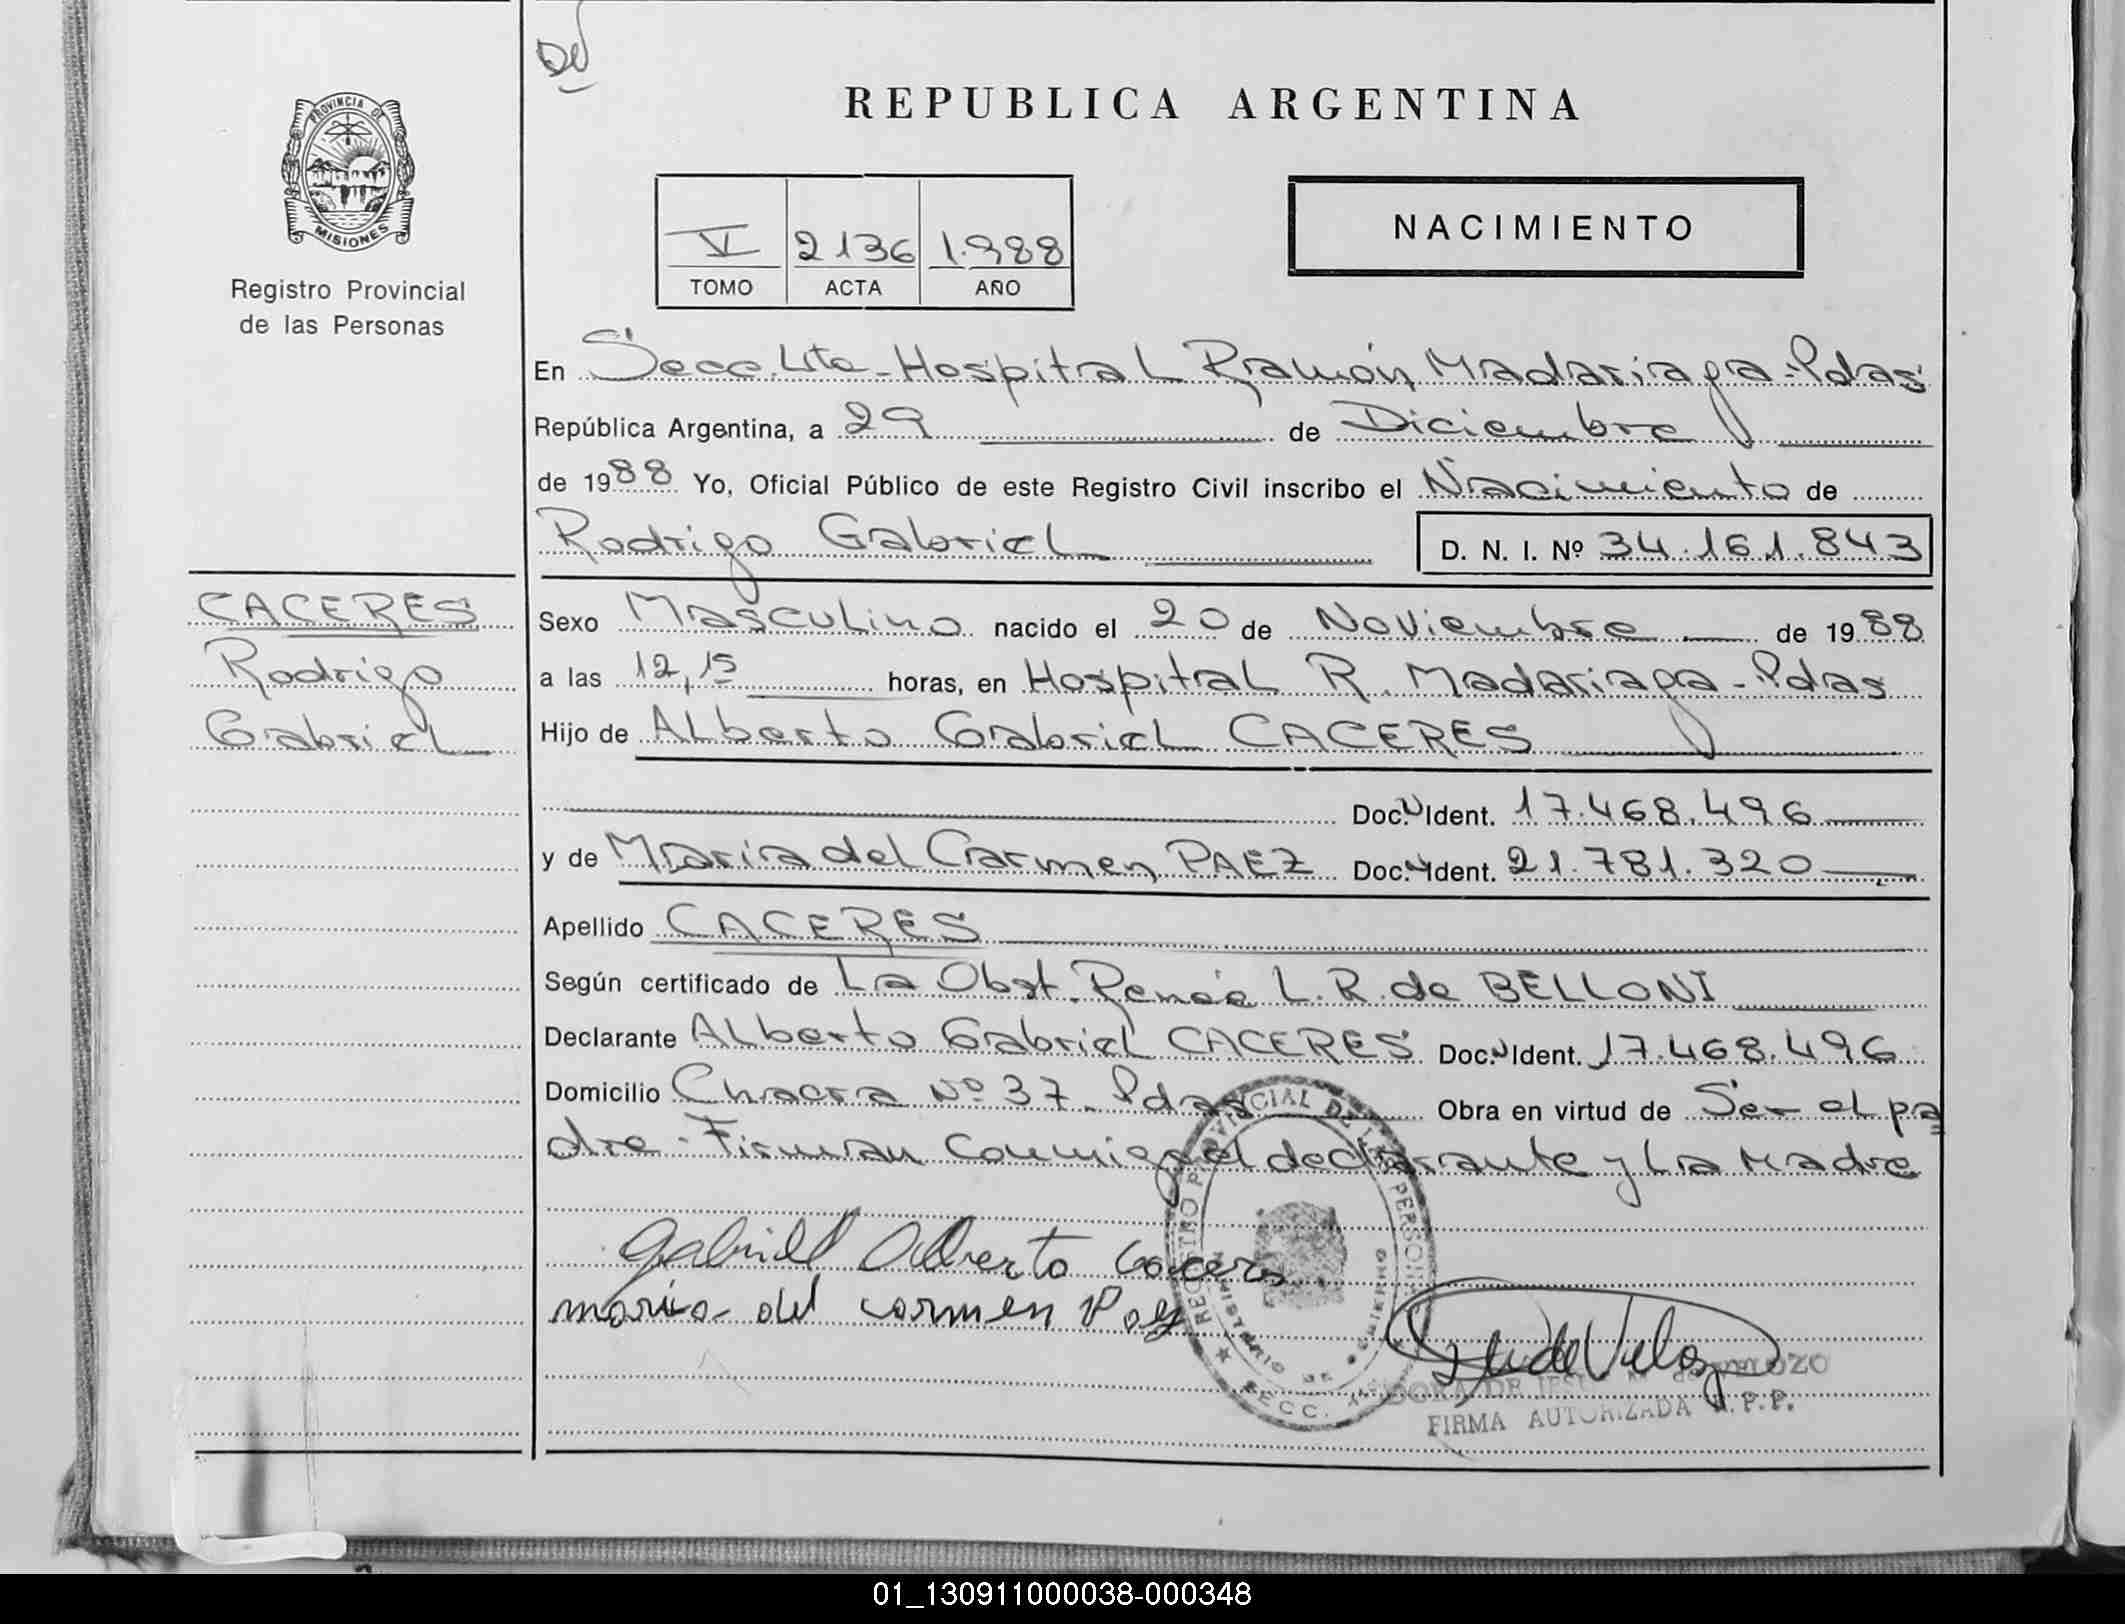 De
REPUBLICA ARGENTINA
PROVINCIA DE
MISIONES
Registro Provincial
de las Personas
V 2136 1.988
TOMO ACTA AÑO
NACIMIENTO
En Secc. Hospital Ramón Madariaga - Pdas
República Argentina, a 29 de Diciembre
de 1988 Yo, Oficial Público de este Registro Civil inscribo el Nacimiento de
Rodrigo Gabriel D. N. I. Nº 34.161.843
CACERES
Rodrigo
Gabriel
Sexo Masculino nacido el 20 de Noviembre de 1988
a las 12,15 horas, en Hospital R. Madariaga - Pdas
Hijo de Alberto Gabriel CACERES
Doc. Ident. 17.468.496
y de María del Carmen PAEZ Doc. Ident. 21.781.320
Apellido CACERES
Según certificado de La Obst. Renée L. R. de BELLONI
Declarante Alberto Gabriel CACERES Doc. Ident. 17.468.496
Domicilio Chacra Nº 37 - Pdas Obra en virtud de Ser el pa
dre - Firman Conmigo el declarante y La Madre
Gabriel Alberto Caceres
maria del carmen Paez
REGISTRO PROVINCIAL DE LAS PERSONAS
MINISTERIO DE GOBIERNO
SECC.
FIRMA AUTORIZADA R.P.P.
01_130911000038-000348